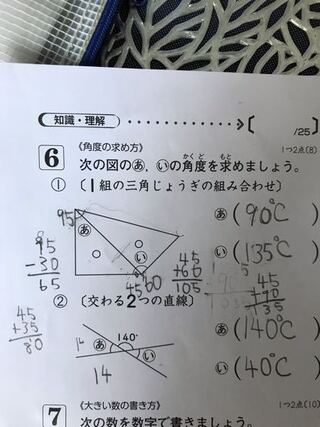 知識・理解
[ /25]
6 《角度の求め方》 1つ2点(8)
次の図のあ、いの角度を求めましょう。
かくど もと
① 〔1組の三角じょうぎの組み合わせ〕
95 あ
あ(90°C)
い(135°C)
95
-30
65
い
45 60
45
+60
105
45
+90
135
② 〔交わる2つの直線〕
45
+35
80
あ 140° い
14
あ(140°C)
い(40°C)
7 《大きい数の書き方》 1つ2点(10)
次の数を数字で書きましょう。